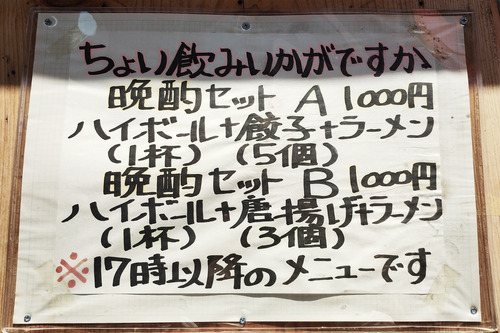 ちょい飲みいかがですか
晩酌セット A 1000円
ハイボール+餃子+ラーメン
(1杯) (5個)
晩酌セット B 1000円
ハイボール+唐揚げ+ラーメン
(1杯) (3個)
※17時以降のメニューです